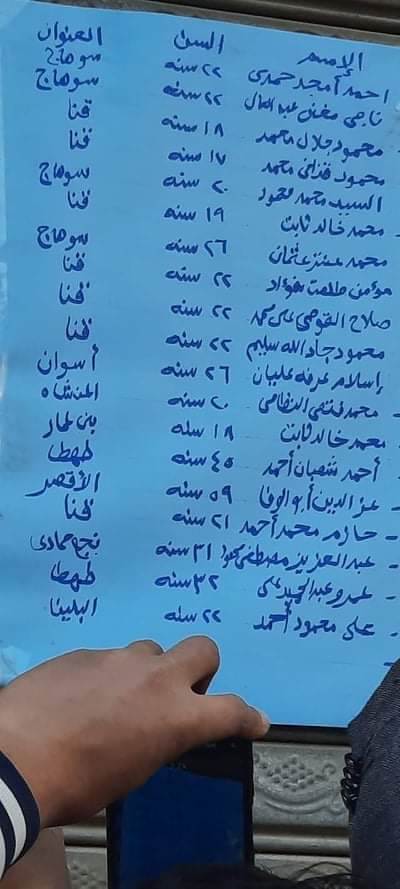 الإسم السن العنوان
احمد أمجد حمدى ٢٢ سنه سوهاج
ناجى عبد العال ٢٢ سنه سوهاج
محمود جلال محمد ١٨ سنه قنا
محمود محمد ١٧ سنه قنا
السيد محمد محمود ٢٠ سنه سوهاج
محمد خالد ثابت ١٩ سنه قنا
محمد عنتر عثمان ٢٦ سنه سوهاج
مؤمن طلعت فؤاد ٢٢ سنه قنا
صلاح محمد ٢٢ سنه قنا
محمود جاد الله سليم ٢٢ سنه قنا
إسلام عرفه عليان ٢٦ سنه أسوان
محمد فتحى ٢٠ سنه المنشاه
محمد خالد ثابت ١٨ سنه
أحمد شعبان أحمد ٤٥ سنه طهطا
عز الدين أبو الوفا ٥٩ سنه الأقصر
حازم محمد أحمد ٢١ سنه قنا
عبد العزيز مصطفى محمود ٣١ سنه نجع حمادى
عمرو عبد الحميد على ٣٢ سنه طهطا
على محمود أحمد ٢٢ سنه البلينا